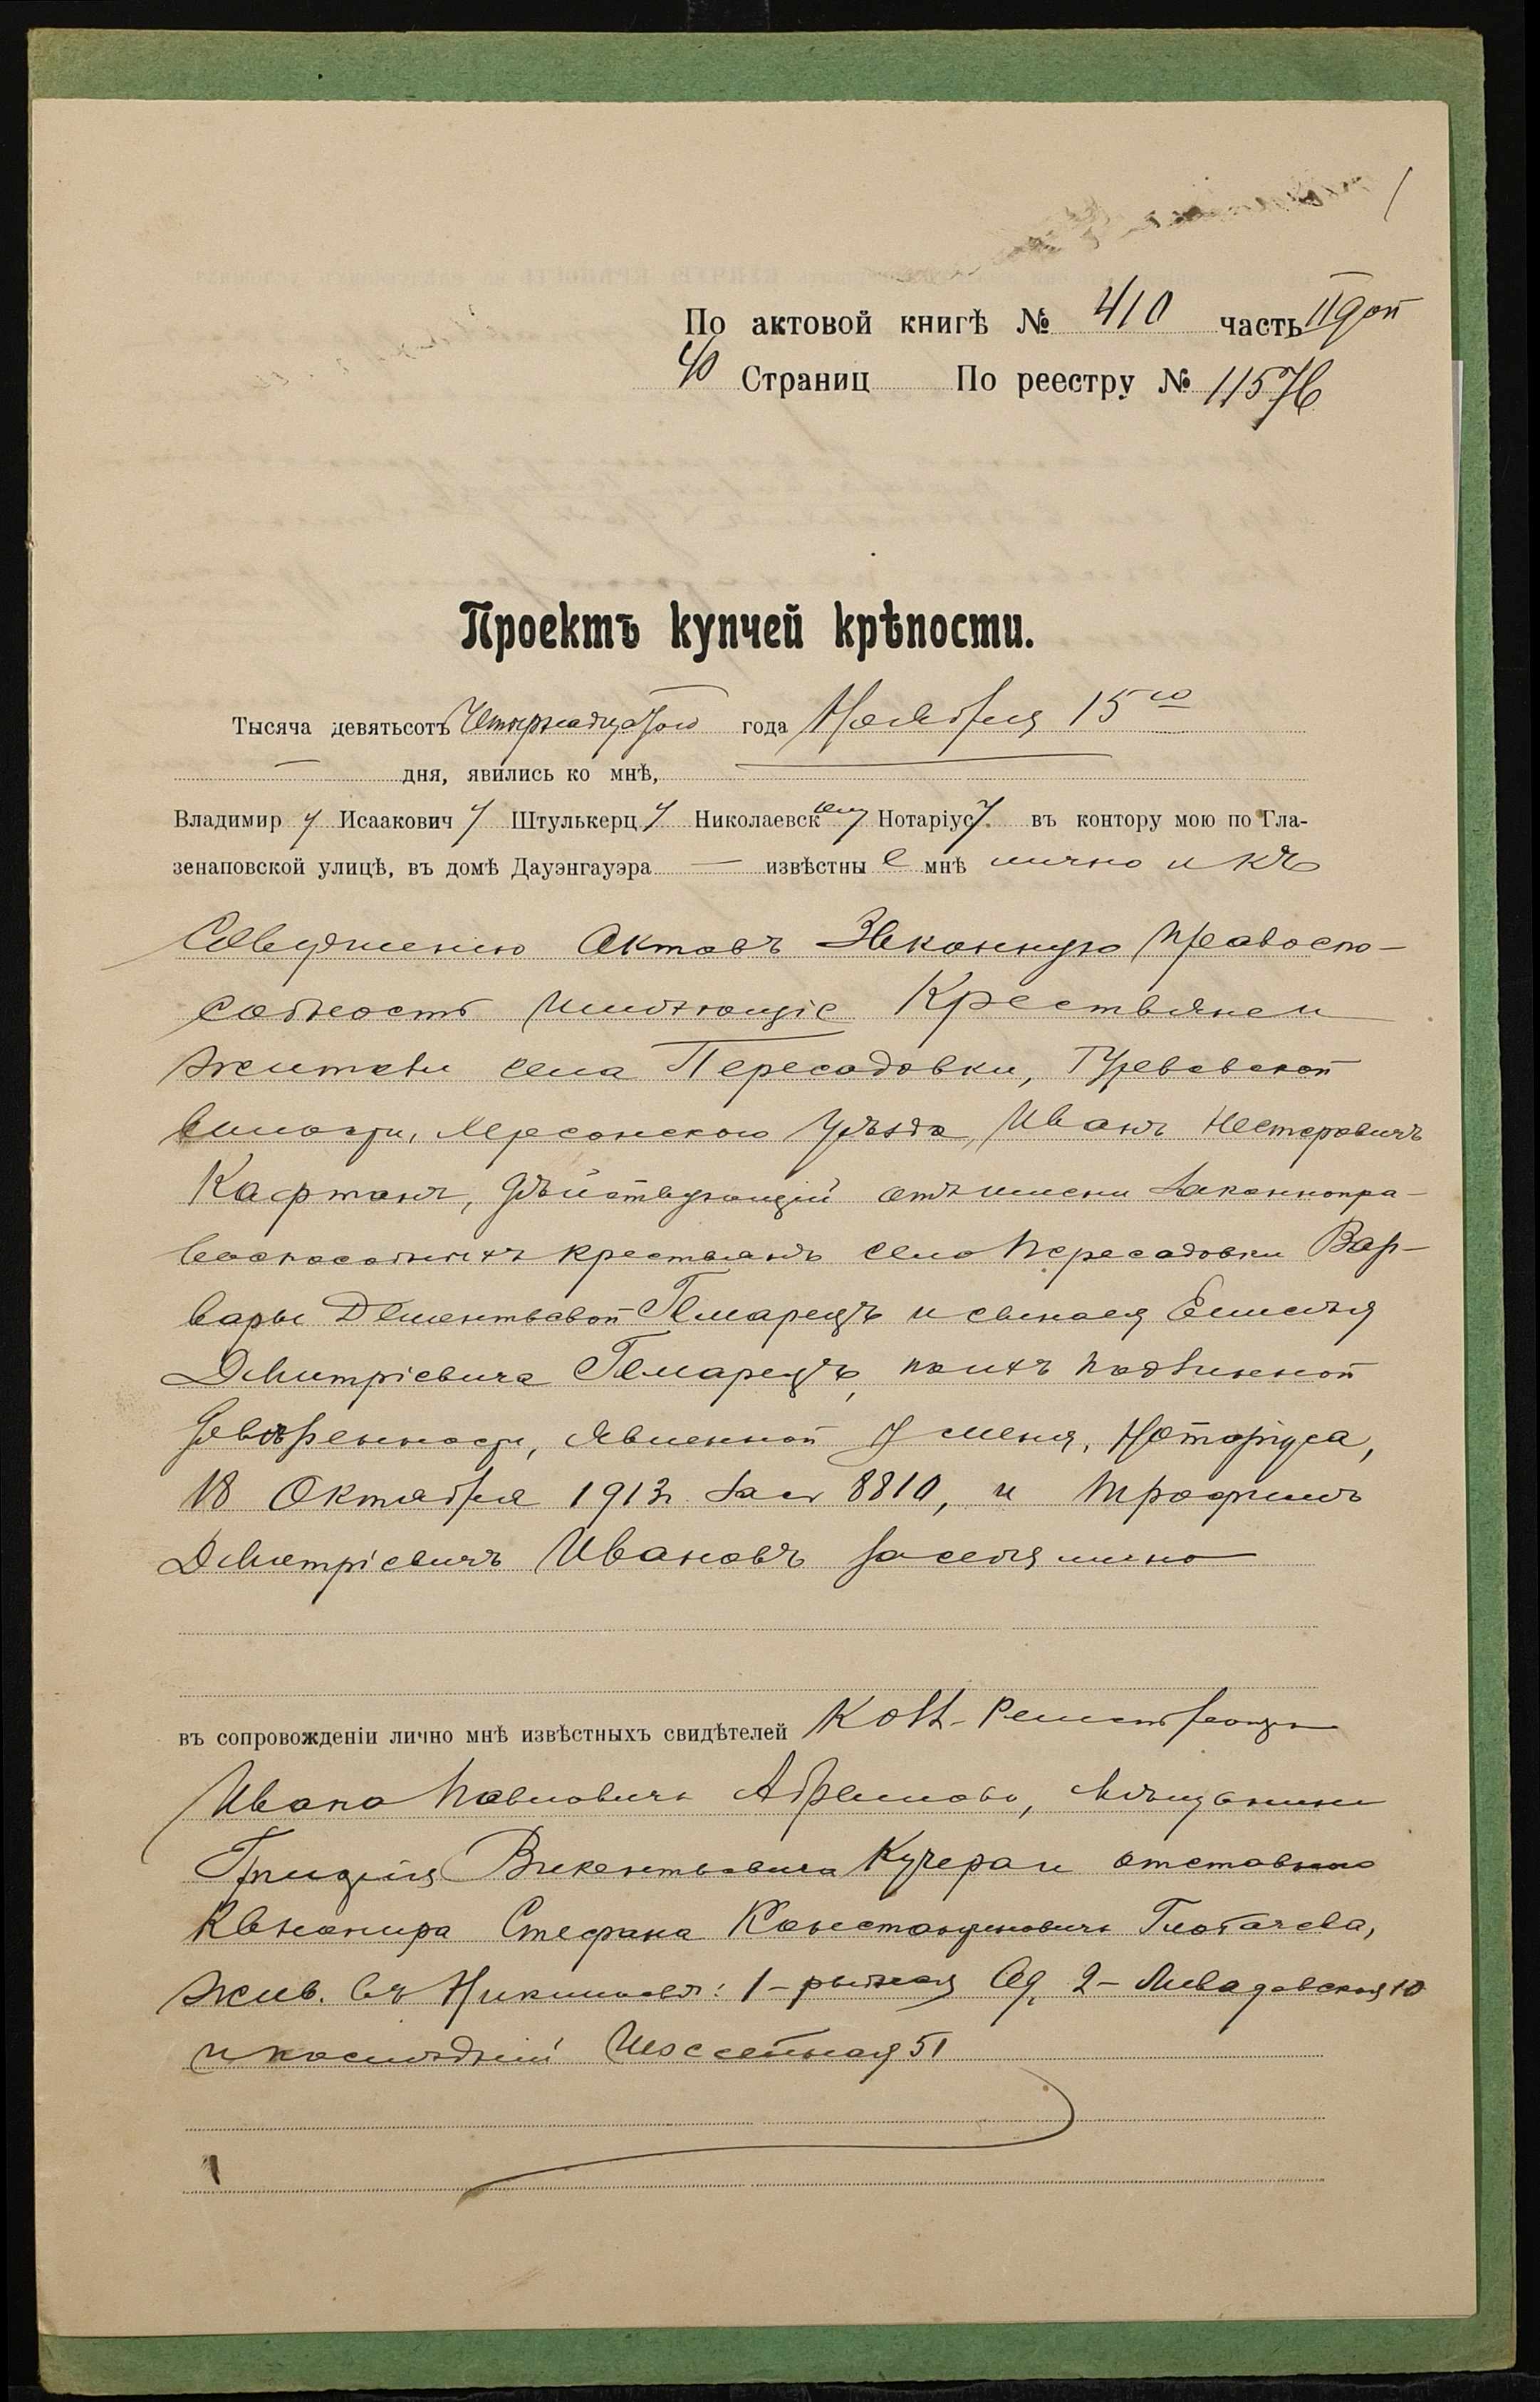 По актовой книгѣ № 410 часть II дон
40 Страниц По реестру № 11576
Проектъ купчей крѣпости.
Тысяча девятьсотъ Четырнадцатого года Ноября 15го
дня, явились ко мнѣ,
Владимиру Исааковичу Штулькерцу Николаевскому Нотаріусу въ контору мою по Гла-
зенаповской улицѣ, въ домѣ Дауэнгауэра — извѣстные мнѣ лично и къ
Совершенію Актовъ Законную правоспо-
собность имѣющіе Крестьяне
жители села Пересадовки,
волости, Херсонского Уѣзда, Иванъ Нестеровичъ
Кафтанъ, дѣйствующій отъ имени Законнопра-
воспособныхъ крестьянъ села Пересадовки Вар-
вары Дементьевой Гемарецъ и
Дмитріевича Гемарецъ, по ихъ подлинной
довѣренности, явленной У меня, Нотаріуса,
18 Октября 1913г. за № 8810, и Трофимъ
Дмитріевичъ Ивановъ за себя лично
въ сопровожденіи лично мнѣ извѣстныхъ свидѣтелей Колл. Регистратора
Ивана Павловича Абрамова, мѣщанина
Григорія Викентьевича Кучера и отставного
Канонира Стефана Константиновича Глобачева,
жив. въ Николаевѣ: 1- рыбная 2- Ливадовская 10
и послѣдній Шоссейная 51